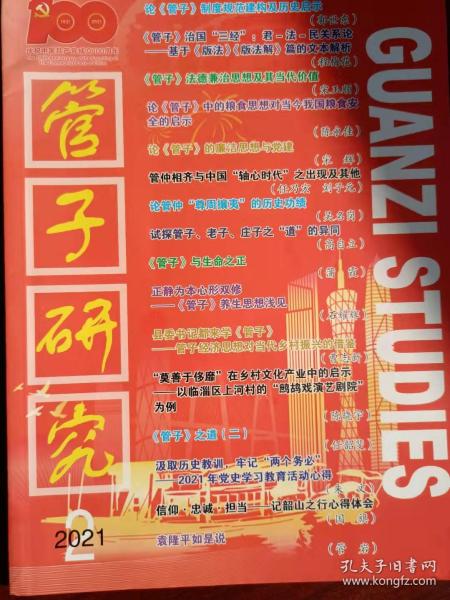 1921 2021
论《管子》制度规范建构及历史启示
《管子》治国“三经”：君-法-民关系论
——基于《版法》《版法解》篇的文本解析
《管子》法德兼治思想及其当代价值
(宋玉顺)
论《管子》中的粮食思想对当今我国粮食安
全的启示
(陈永佳)
论《管子》的廉洁思想与党建
(宋 辉)
管仲相齐与中国“轴心时代”之出现及其他
论管仲“尊周攘夷”的历史功绩
试探管子、老子、庄子之“道”的异同
(高自立)
《管子》与生命之正
正静为本心形双修
——《管子》养生思想浅见
县委书记都来学《管子》
——管子经济思想对当代乡村振兴的借鉴
“莫善于侈靡”在乡村文化产业中的启示
——以临淄区上河村的“鹧鸪戏演艺剧院”
为例
《管子》之道（二）
汲取历史教训，牢记“两个务必”
——2021年党史学习教育活动心得
信仰·忠诚·担当——记韶山之行心得体会
(国 旗)
袁隆平如是说
(管 岩)
管
子
研
究
GUANZI STUDIES
2
2021
孔夫子旧书网
www.kongfz.com